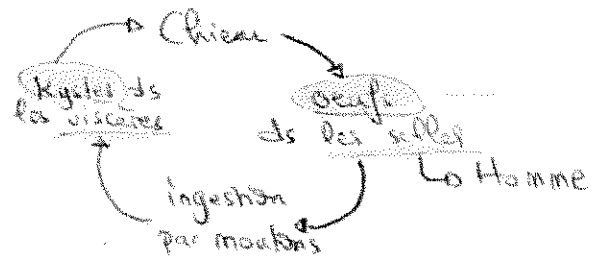 Chien
Kystes ds
les viscères
oeufs
ds les selles
Homme
ingestion
par moutons